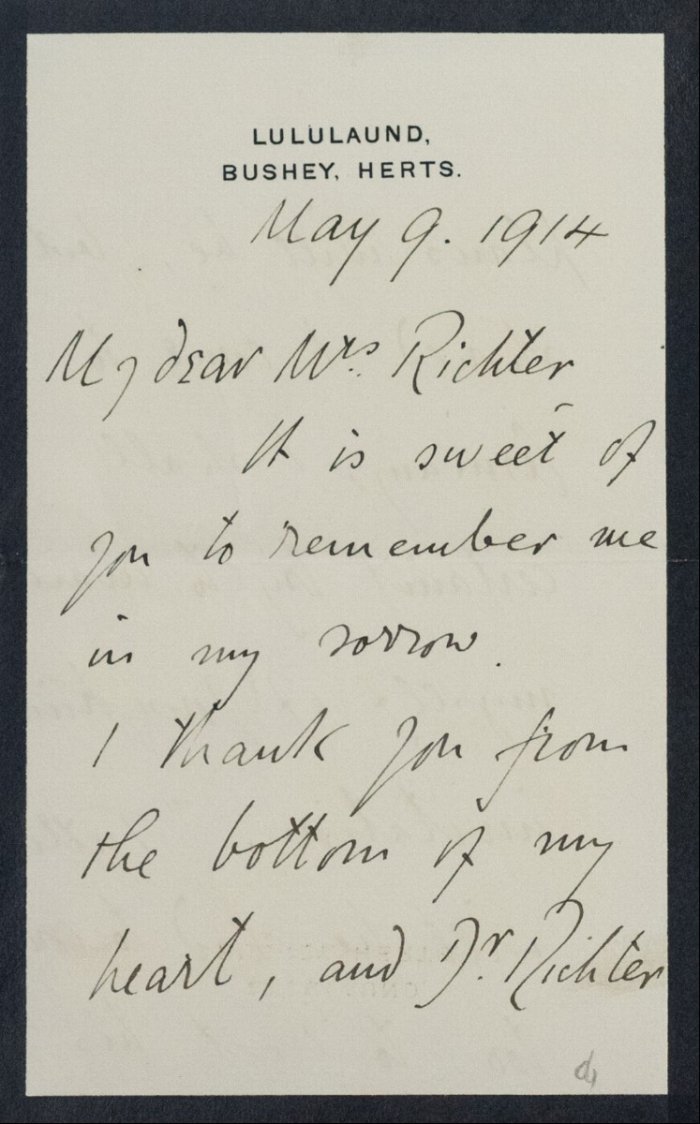 LULULAUND,
BUSHEY, HERTS.
May 9. 1914
My dear Mrs. Richter
It is sweet of
you to remember me
in my sorrow.
I thank you from
the bottom of my
heart, and Dr. Richter